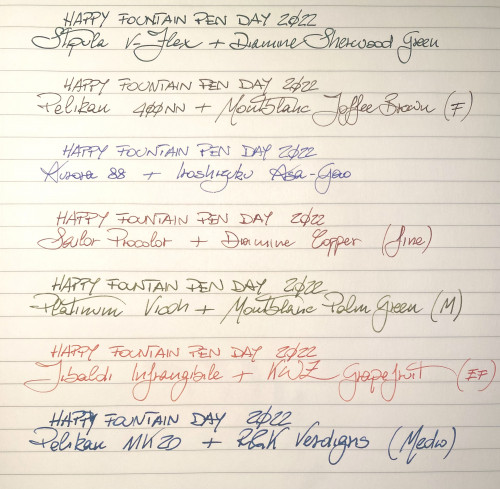 HAPPY FOUNTAIN PEN DAY 2022
Stipula V-Flex + Diamine Sherwood Green
HAPPY FOUNTAIN PEN DAY 2022
Pelikan 400NN + Montblanc Toffee Brown (F)
HAPPY FOUNTAIN PEN DAY 2022
Aurora 88 + Iroshizuku Asa-Gao
HAPPY FOUNTAIN PEN DAY 2022
Sailor Procolor + Diamine Copper (fine)
HAPPY FOUNTAIN PEN DAY 2022
Platinum + Montblanc Palm Green (M)
HAPPY FOUNTAIN PEN DAY 2022
Tibaldi Infrangibile + KWZ Grapefruit (EF)
HAPPY FOUNTAIN DAY 2022
Pelikan MK20 + R&K Verdigris (Medio)